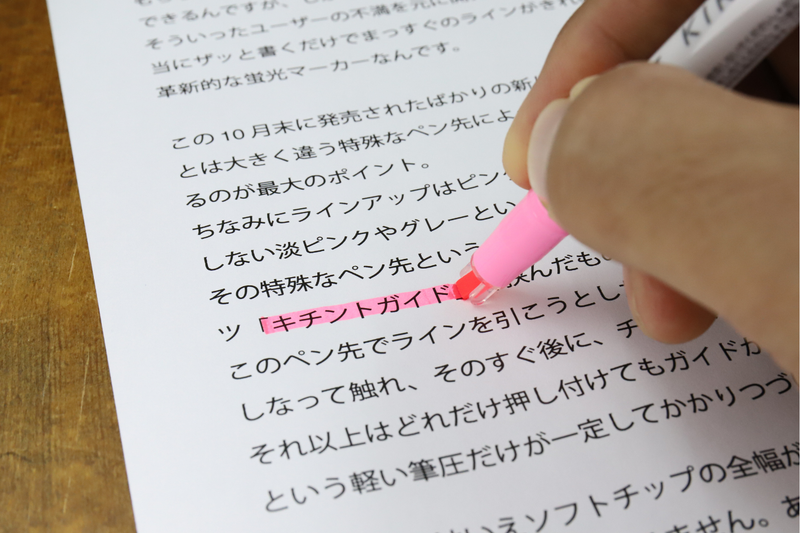 できるんですが、し
そういったユーザーの不満を元に
当にザッと書くだけでまっすぐのラインがきれ
革新的な蛍光マーカーなんです。
この10月末に発売されたばかりの新
とは大きく違う特殊なペン先によ
るのが最大のポイント。
ちなみにラインアップはピン
しない淡ピンクやグレーとい
その特殊なペン先という
ツ「キチントガイド」 挟んだも
このペン先でラインを引こうとし
しなって触れ、そのすぐ後に、チ
それ以上はどれだけ押し付けてもガイドが
という軽い筆圧だけが一定してかかりつづ
いえソフトチップの全幅が
ません。あ
KIK